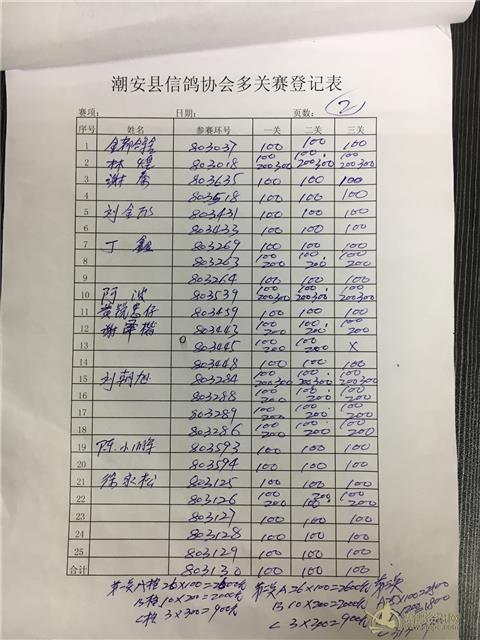 潮安县信鸽协会多关赛登记表
赛项: 日期: 页数: 2
序号 姓名 参赛环号 一关 二关 三关
1 803037 100 100 100
2 林煌 803018 100 200 300 100 200 300 100 200 300
3 谢 803635 100 100 100
4 803518 100 100 100
5 刘金 803431 100 100 100
6 803433 100 100 100
7 丁鑫 803269 100 100 100
8 803263 100 200 100 200 100 200
9 803264 100 100 100
10 阿波 803539 100 200 300 100 200 300 100 200 300
11 黄 忠仔 803459 100 100 100
12 谢泽楷 803443 100 200 100 200 100 200
13 803445 100 200 100 200 X
14 803448 100 100 100
15 刘朝旭 803284 100 200 300 100 200 300 100 200 300
16 803288 100 200 100 200 100 200
17 803289 100 200 100 200 100 200
18 803286 100 200 100 200 100 200
19 陈小辉 803593 100 100 100
20 803594 100 100 100
21 徐永松 803125 100 100 100
22 803126 100 200 100 200 100 200
23 803127 100 100 100
24 803128 100 100 100
25 803129 100 100 100
合计 803130 100 100 100
第一关 A组 26×100=2600元 第二关 A 26×100=2600元 第三关
B组 10×200=2000元 B 10×200=2000元 A 25×100=2500
C组 3×300=900元 C 3×300=900元